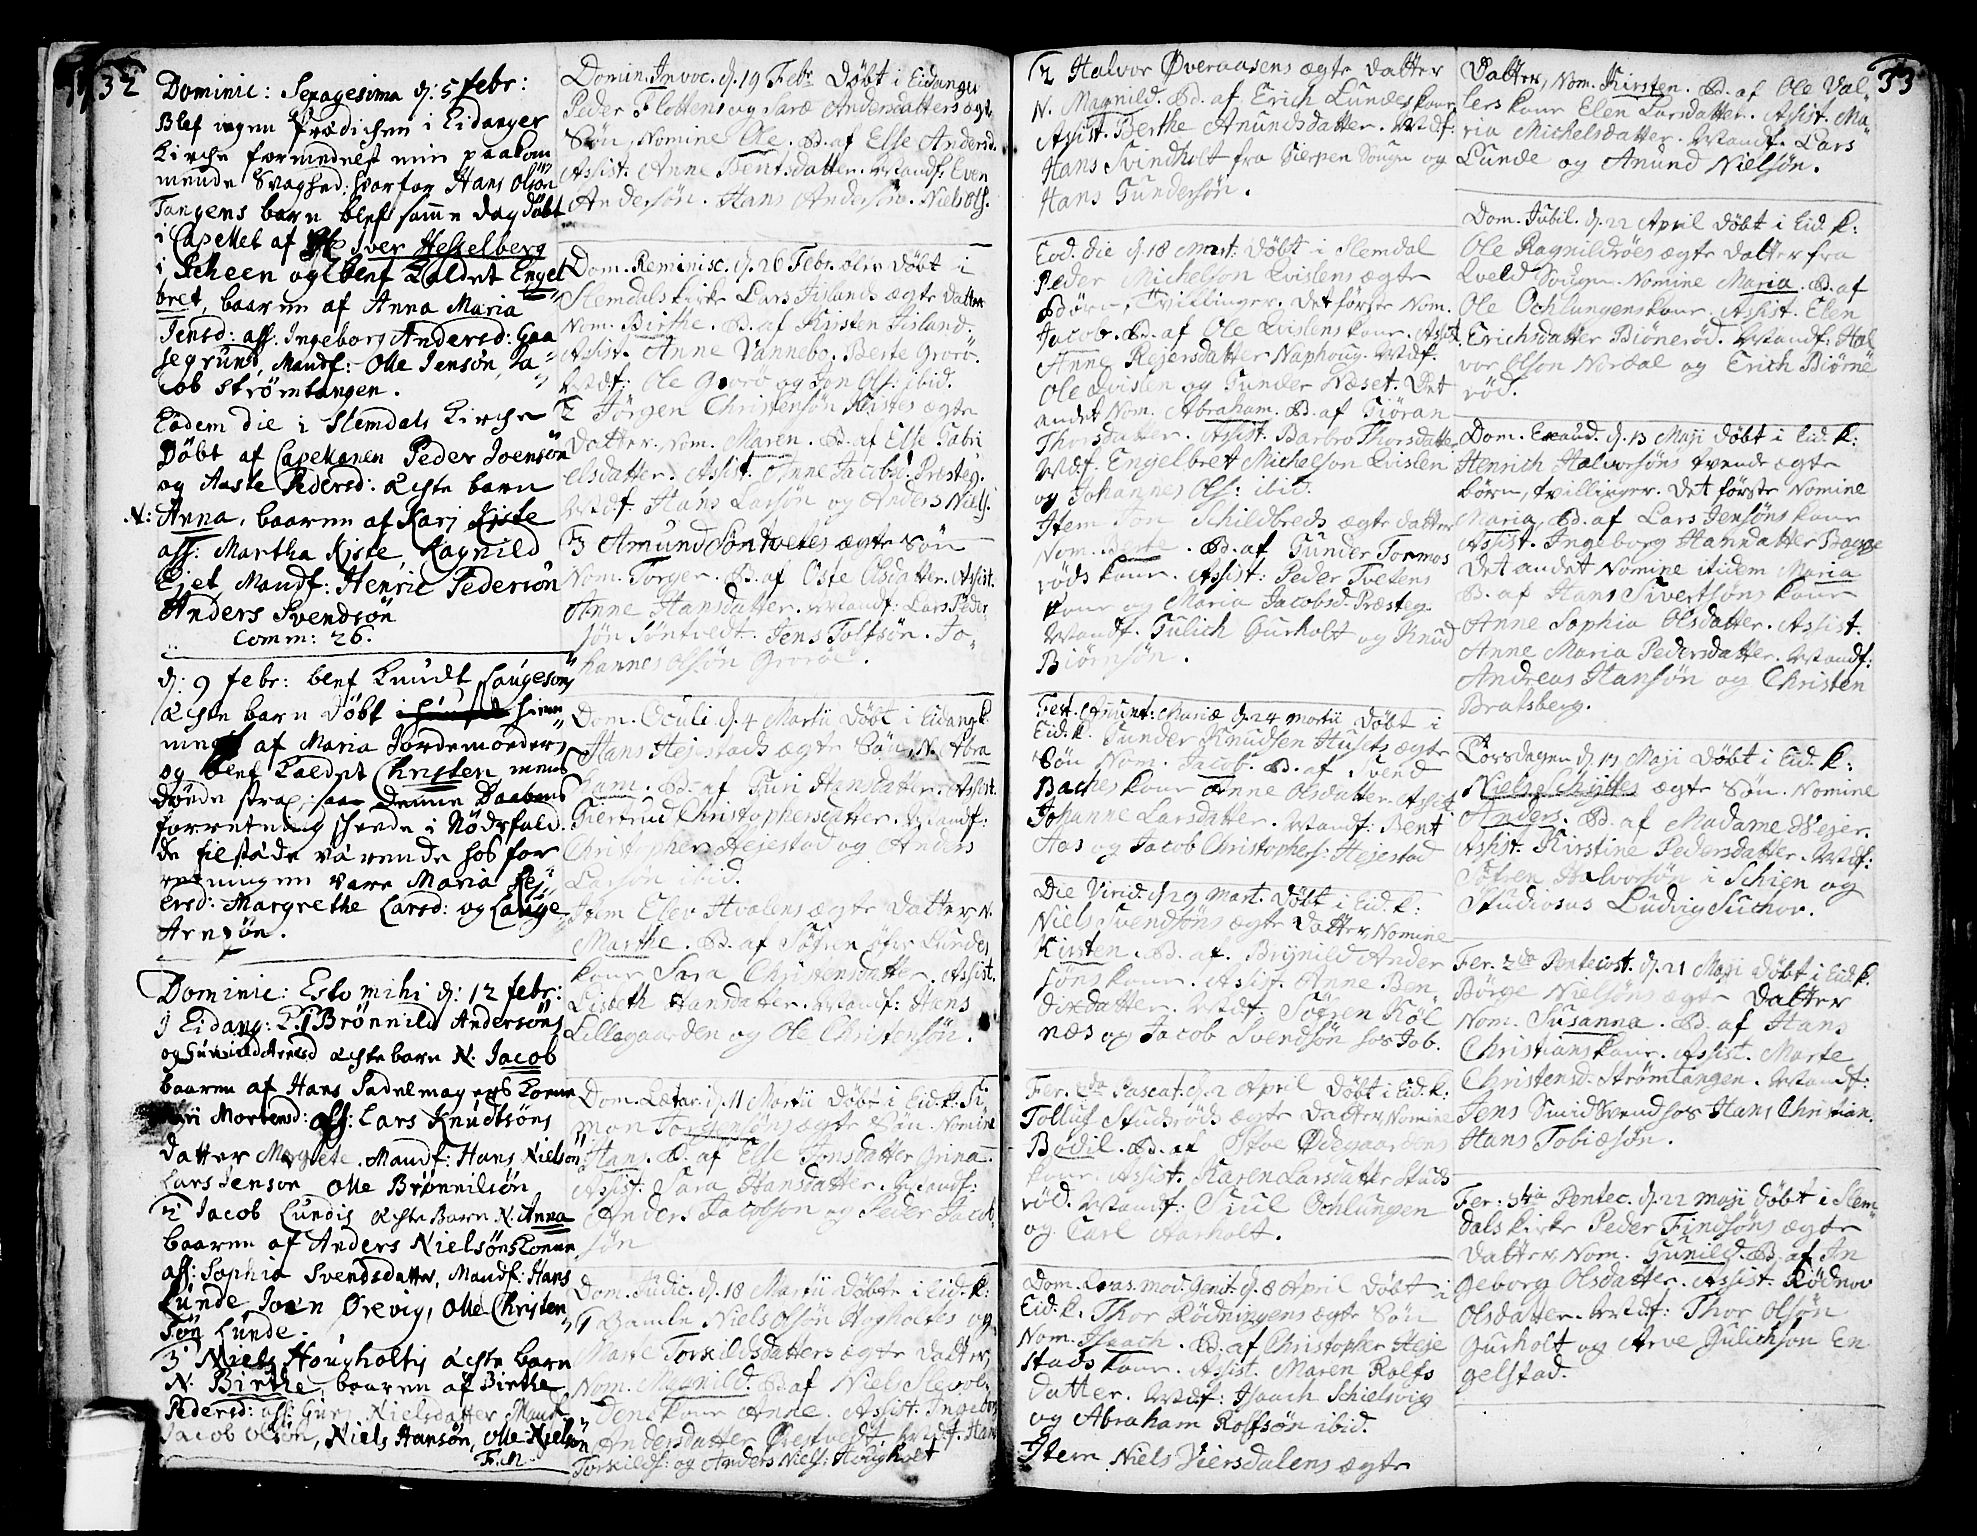 32
Dominic: Sexagesima d: 5 febr:
Blef ingen Prædichen i Eidanger
Kirche formedelst min paakom
mende Svaghed: hvorfor Hans Olsøn
Tangens barn blef samme dag døbt
i Capellet af Iver Hesselberg
i Scheen og blef kaldet Engel
bret, baaren af Anna Maria
Jensd: ass: Ingeborg Andersd: Gaa
segrund, Mandf: Olle Jensøn, Ja
cob Strømtangen.
Eodem die i Slemdals Kirche
Døbt af Capellanen Peder Joensøn
og Aaste Pedersd: Ächte barn
N: Anna, baaren af Karj Kiste
ass: Martha Kiste, Ragnild
Ejet, Mandf: Henric Pedersøn
Anders Svendsøn
Comm: 26.
d: 9 febr: blef Knudt Laugesøns
Ächte barn døbt hiem
me af Maria Jordemoders
og blef kaldet Christen, mens
døede strax, saa denne Daabens
forretning scheede i Nødsfald.
de tilstäde värende hos for
retningen vare Maria Rej
ersd: Margrethe Larsd: og Lauge
Arnsøn.
Dominic: Esto mihi d: 12 febr:
J Eidang: K: 1 Brønnild Andersøns
og Gunnild Arnesd Ächte barn N. Jacob
baaren af Hans Sadelmagers Konne
Kari Mortensd: ass: Lars Knudtsøns
datter Margrete. Mandf: Hans Nielsøn
Lars Jenson Olle Brønnilsøn
2 Jacob Lundis Ächte Barn N. Anna
baaren af Anders Nielsøns Konne
ass: Sophia Svendsdatter, Mandf: Hans
Lunde, Joen Ørevig, Olle Christen
søn Lunde.
3 Niels Hougholtis Ächte barn
N. Birthe, baaren af Birthe
Pedersd: ass: Gurj Nielsdatter Mandf:
Jacob Olsøn, Niels Hansøn, Olle Nielsøn
Domin. Invoc. d. 19 Febr. Døbt i Eidanger
Peder Flottens og Saræ Andersdatters ægte
Søn, Nomine Ole. B. af Else Andersd.
Assist. Anne Bentsdatter. Mandf. Even
Andersøn. Hans Andersøn. Niels Ols.
Dom. Reminisc. d. 26 Febr. blev Døbt i
Slemdals kirke Lars Fislands ægte datter
Nom. Birthe. B. af Kirsten Fisland.
Assist. Anne Vannebo. Berte Grorö.
Mdf: Ole Grorö og Jon Ols: ibid.
2 Jörgen Christensøn Kistes ægte
Datter, Nom. Maren. B. af Else Gabri
elsdatter. Assist. Anne Jacobsd. Præsteg.
Mdf. Hans Larsøn og Anders Niels.
3 Amund Søntvets ægte Søn
Nom. Torger. B. af Oste Olsdatter. Assist.
Anne Hansdatter. Mandf: Lars Peder
søn Søntvedt. Jens Toltsøn. Jo
hannes Olsøn Grorö.
Dom. Oculi. d. 4 Martii Døbt i Eidang. k.
Hans Hejestads ægte Søn, N. Abra
ham. B. af Guri Hansdatter. Assist.
Giertrud Christophersdatter. Mandf:
Christopher Hejestad og Anders
Larsøn ibid.
Item Elev Hvalens ægte Datter N.
Marthe. B. af Søfren øfre Lundes
kone Sara Christensdatter. Assist.
Lisbeth Hansdatter. Mandf: Hans
Lillegaarden og Ole Christensøn.
Dom. Lætar. d. 11 Martii Døbt i Eid. k. Si
mon Torgersøns ægte Søn. Nomine
Hans. B. af Else Jonsdatter Grina.
Assist. Sara Hansdatter. Mandf:
Anders Jacobsøn og Peder Jacob
søn
Dom. Judic. d. 18 Martii Døbte i Eid. k:
1 Gamle Niels Olsøn Hogholtes og
Marte Torkildsdatters ægte datter,
Nom. Magnild. B. af Niels
kone Anne. Assist. Ingebor
Andersdatter Mdf. Hans
Torkilds: og Anders Niels: Hougholt
2 Halvor Øveraasens ægte datter
N. Magnild. B. af Erich Lundes kone
Assist. Berthe Anundsdatter. Mdf:
Hans Svindholt fra Sierpen Sougn og
Hans Gundersøn.
Eod. die d. 18 Mart: Døbt i Slemdal
Peder Michelsøn Qvislens ægte
Börn, Tvillinger. Det første Nom.
Jacob. B. af Ole Qvislens kone. Assist.
Anne Rejersdatter Naphoug. Mdf.
Ole Qvislen og Gunder Næset. Det
andet Nom. Abraham. B. af Giöran
Thorsdatter. Assist. Barbro Thorsdatter
Mdf. Engelbret Michelsøn Qvislen
og Johannes Ols: ibid.
Item Jon Schildbreds ægte datter
Nom. Berte. B. af Gunder Tormos
röds kone. Assist: Peder Tvetens
kone og Maria Jacobsd. Præsteg.
Mandf. Gulich Gurholt og Knud
Biørnsøn.
Fest. Anunt: Mariæ d. 24 Martii Døbt i
Eid. k. Gunder Knudsen Husets ægte
Søn Nom. Jacob. B. af Svend
Baches kone Anne Olsdatter. Assist.
Johanne Larsdatter. Mandf: Bent
Aas og Jacob Christophers: Hejestad
Die Virid. d. 29 Mart. Døbt i Eid. k:
Niels Svendsøns ægte Datter, Nomine
Kirsten. B. af Brynild Ander
søns kone. Assist. Anne Ben
dixdatter. Mdf. Søfren Köl
næs og Jacob Svendsøn hos Job.
Fer. 2da Pascat. d. 2 April Døbt i Eid. k:
Tollug Studsröds ægte datter, Nomine
Bodil. B. af Ødegaardens
kone. Assist. Karen Larsdatter Studs
röd. Mandf: Skul Ochlungen
og Carl Aarholt.
Dom. Quas. mod. Genit. d. 8 April Døbt i
Eid. k. Thor Rödningens ægte Søn
Nom. Isaach. B. af Christopher Heje
stads kone. Assist. Maren Rolfs
datter. Mdf: Isaach Schielsvig
og Abraham Rolfsøn ibid.
Item Niels Viersdalens ægte
33
Datter, Nom. Kirsten. B. af Ole Val
lers kone Elen Larsdatter. Assist. Ma
ria Michelsdatter. Mandf. Lars
Lunde og Anund Nielsøn.
Dom. Jubil. d. 22 April døbt i Eid k:
Ole Ragnildröes ægte datter fra
Qveld Sougn. Nomine Maria. B. af
Ole Ochlungens kone. Assist. Elen
Erichsdatter Biönerød. Mandf: Hal
vor Olsøn Nordal og Erich Biørne
röd.
Dom. Exaud. d. 13 Maji Døbt i Eid. k:
Henrich Halvorsøns tvende ægte
børn, tvillinger. Det første Nomine
Maria, B. af Lars Jensøns kone
Assist. Ingeborg Hansdatter Bauge
Det andet Nomine itidem Maria
B. af Hans Sivertsøns kone
Anne Sophia Olsdatter. Assist.
Anne Maria Pedersdatter. Mandf:
Andreas Hansøn og Christen
Bratsberg.
Torsdagen d. 17 Maji Døbt i Eid. k:
Niels Schyttes ægte Søn. Nomine
Anders. B. af Madame Wejer.
Assist. Kirstine Pedersdatter. Mdf:
Søfren Halvorsøn i Schien og
Studiosus Ludvig Suchov.
Fer. 2da Pentecost. d. 21 Maji Døbt i Eid. k.
Børge Nielsøns ægte datter
Nom. Susanna. B. af Hans
Christians kone. Assist. Marte
Christensd. Strømtangen. Mandf:
Jens Smidsvend hos Hans Christian.
Hans Tobiæsøn.
Fer: 3tia Pentec. d. 22 Maji Døbt i Slem
dals kirke Peder Findsøns ægte
Datter, Nom. Gunild. B. af In
geborg Olsdatter. Assist. Rødnov
Olsdatter. Mdf: Thor Olsøn
Gurholt og Arve Gulichsøn En
gelstad.